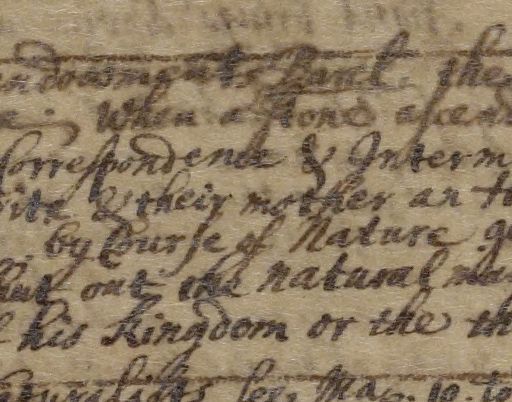 endowments Baml. the
When a stone ascend
Correspondence & Interm
& their mother an
by Course of Nature
shut out the natural ma
his Kingdom or the th
Mag. 10. to